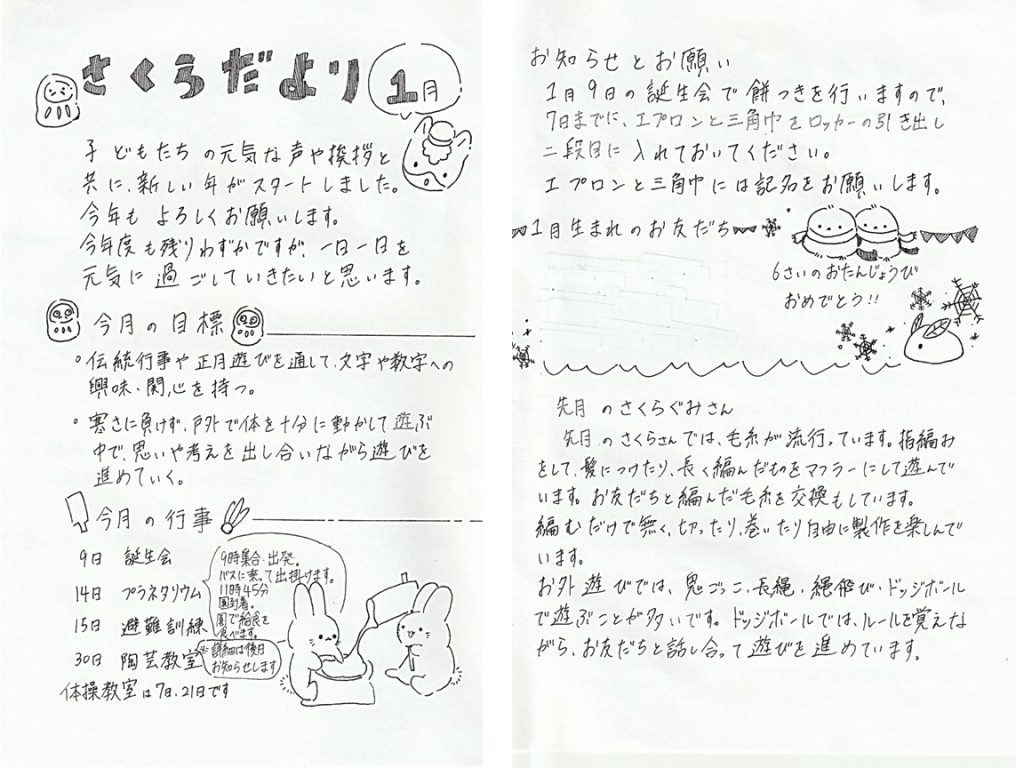 さくらだより 1月
子どもたちの元気な声や挨拶と
共に、新しい年がスタートしました。
今年もよろしくお願いします。
今年度も残りわずかですが、一日一日を
元気に過ごしていきたいと思います。
今月の目標
・伝統行事や正月遊びを通して、文字や数字への
興味・関心を持つ。
・寒さに負けず、戸外で体を十分に動かして遊ぶ
中で、思いや考えを出し合いながら遊びを
進めていく。
今月の行事
9日 誕生会
14日 プラネタリウム
9時集合・出発。
バスに乗って出掛けます。
11時45分
園到着。
園で給食を
食べます。
15日 避難訓練
30日 陶芸教室
※詳細は後日
お知らせします
体操教室は7日、21日です
お知らせとお願い
1月9日の誕生会で餅つきを行いますので、
7日までに、エプロンと三角巾をロッカーの引き出し
二段目に入れておいてください。
エプロンと三角巾には記名をお願いします。
1月生まれのお友だち
6さいのおたんじょうび
おめでとう!!
先月のさくらぐみさん
先月のさくらさんでは、毛糸が流行っています。指編み
をして、髪につけたり、長く編んだものをマフラーにして遊んで
います。お友だちと編んだ毛糸を交換もしています。
編むだけで無く、切ったり、巻いたり自由に製作を楽しんで
います。
お外遊びでは、鬼ごっこ・長縄・縄飛び・ドッジボール
で遊ぶことが多いです。ドッジボールでは、ルールを覚えな
がら、お友だちと話し合って遊びを進めています。